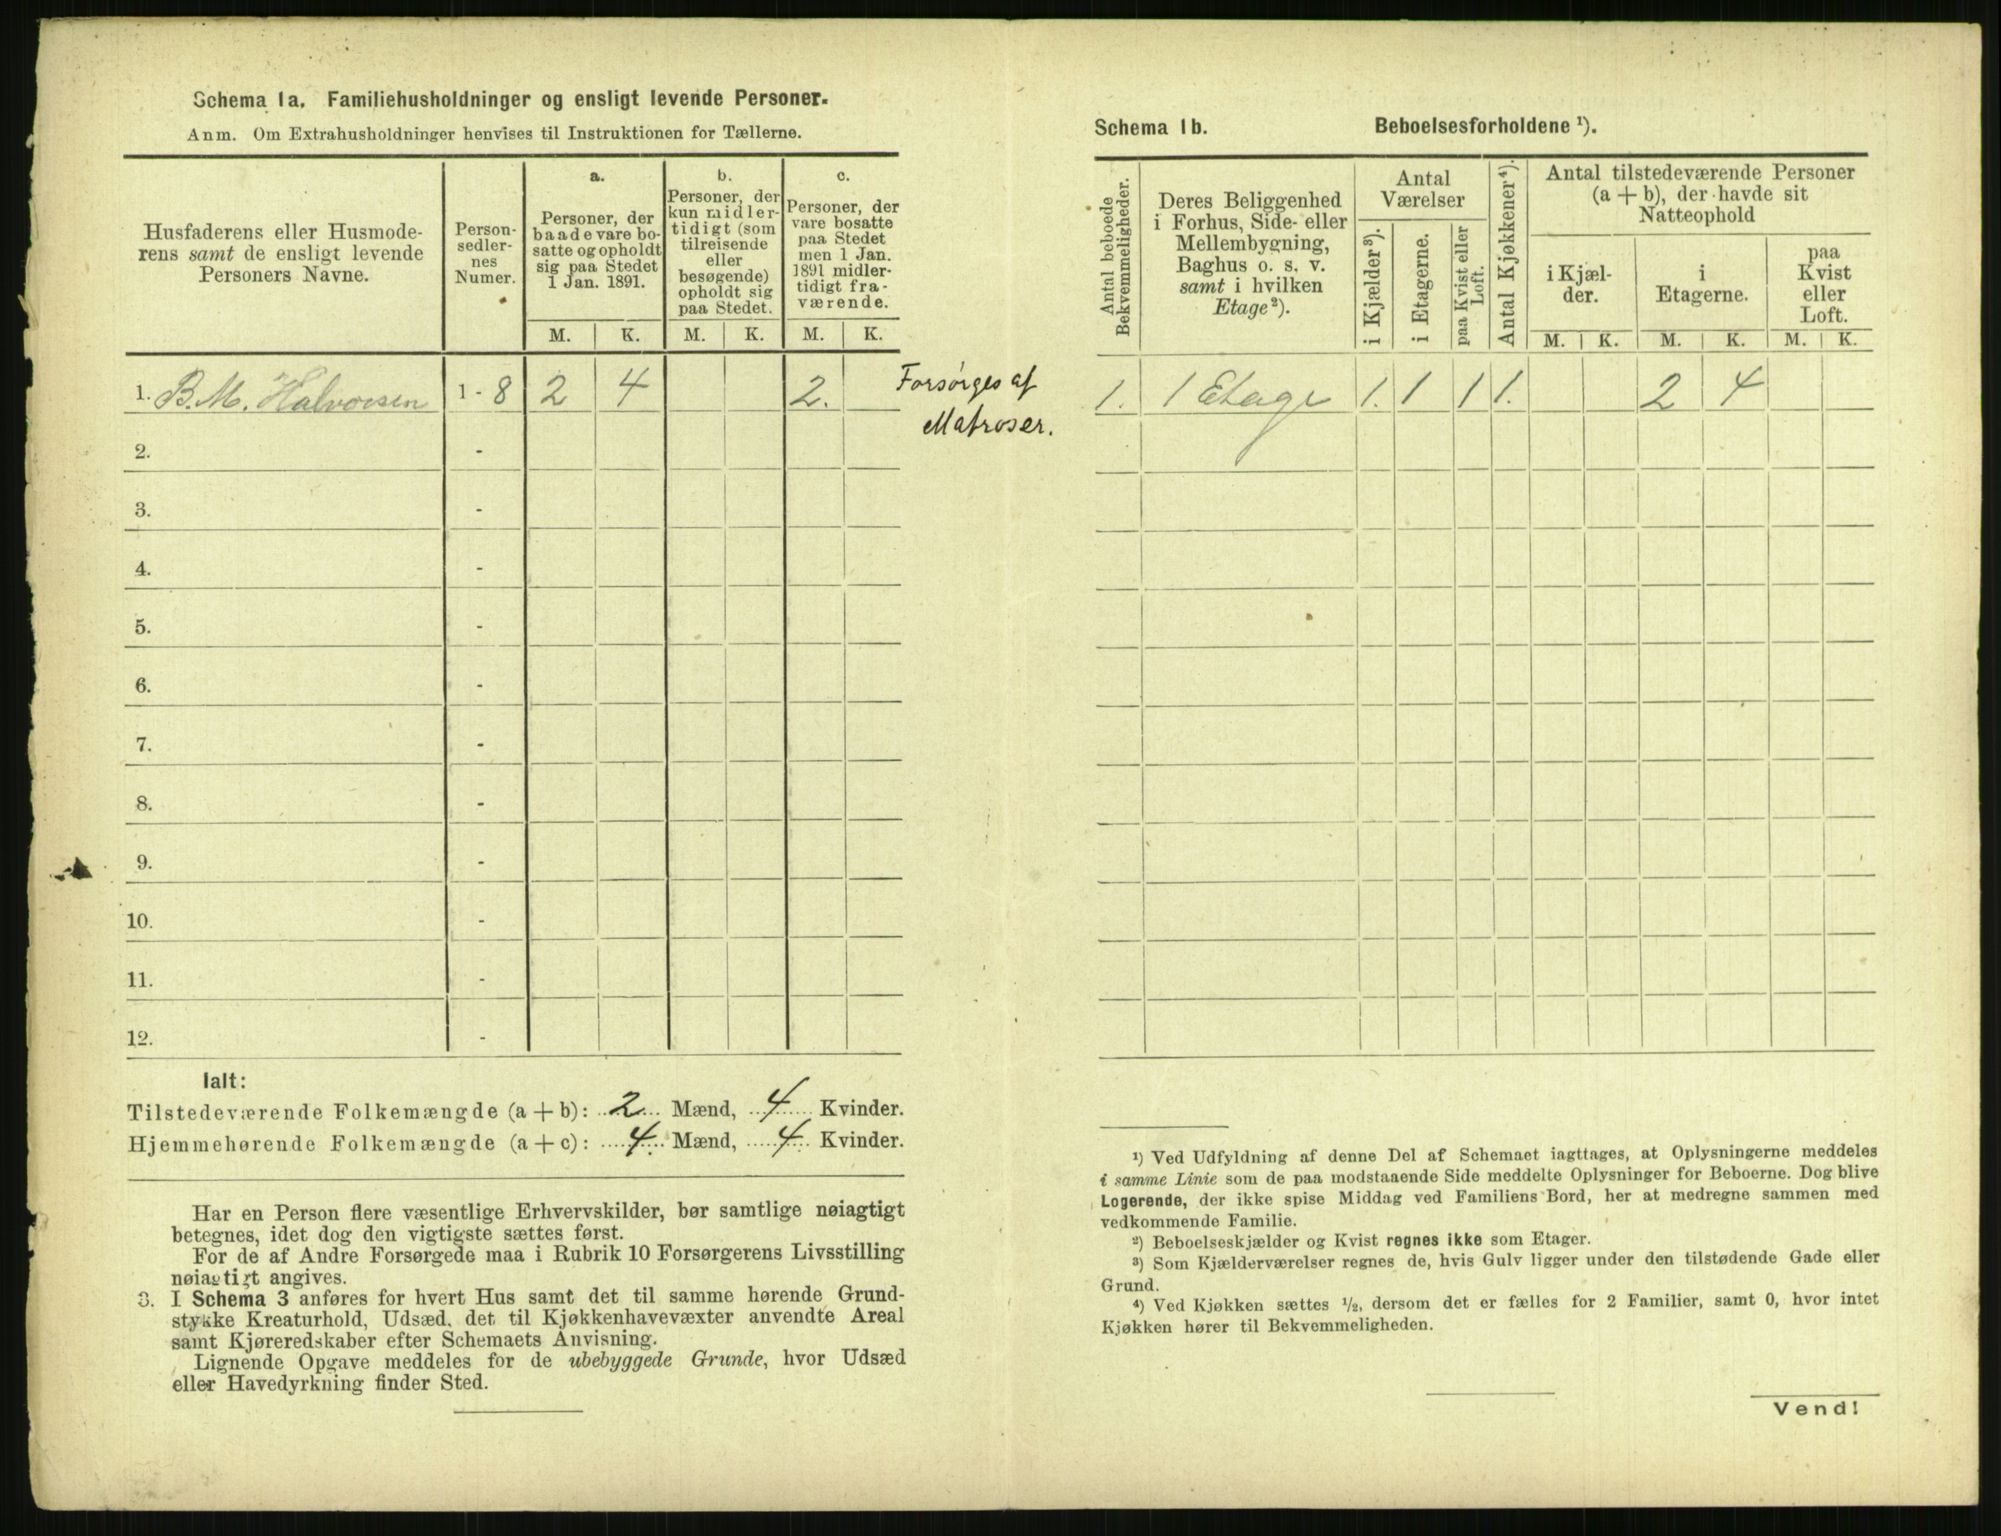 Schema 1a. Familiehusholdninger og ensligt levende Personer.
Anm. Om Extrahusholdninger henvises til Instruktionen for Tællerne.
Husfaderens eller Husmode-
rens samt de ensligt levende
Personers Navne.
Person-
sedler-
nes
Numer.
a.
Personer, der
baade vare bo-
satte og opholdt
sig paa Stedet
1 Jan. 1891.
b.
Personer, der
kun midler-
tidigt (som
tilreisende
eller
besøgende)
opholdt sig
paa Stedet.
c.
Personer, der
vare bosatte
paa Stedet
men 1 Jan.
1891 midler-
tidigt fra-
værende.
M. K. M. K. M. K.
1. B. M. Halvorsen 1 - 8 2 4 2.
Forsørges af
Matroser.
2. -
3. -
4. -
5. -
6. -
7. -
8. -
9. -
10. -
11. -
12. -
Ialt:
Tilstedeværende Folkemængde (a + b): 2 Mænd, 4 Kvinder.
Hjemmehørende Folkemængde (a + c): 4 Mænd, 4 Kvinder.
Har en Person flere væsentlige Erhvervskilder, bør samtlige nøiagtigt
betegnes, idet dog den vigtigste sættes først.
For de af Andre Forsørgede maa i Rubrik 10 Forsørgerens Livsstilling
nøiagtigt angives.
3. I Schema 3 anføres for hvert Hus samt det til samme hørende Grund-
stykke Kreaturhold, Udsæd, det til Kjøkkenhavevæxter anvendte Areal
samt Kjøreredskaber efter Schemaets Anvisning.
Lignende Opgave meddeles for de ubebyggede Grunde, hvor Udsæd
eller Havedyrkning finder Sted.
Schema 1b. Beboelsesforholdene ¹).
Antal beboede
Bekvemmeligheder.
Deres Beliggenhed
i Forhus, Side- eller
Mellembygning,
Baghus o. s. v.
samt i hvilken
Etage ²).
Antal
Værelser
i Kjælder ³).
i Etagerne.
paa Kvist eller
Loft.
Antal Kjøkkener ⁴).
Antal tilstedeværende Personer
(a + b), der havde sit
Natteophold
i Kjæl-
der.
i
Etagerne.
paa
Kvist
eller
Loft.
M. K. M. K. M. K.
1. 1 Etage 1. 1 1 1. 2 4
¹) Ved Udfyldning af denne Del af Schemaet iagttages, at Oplysningerne meddeles
i samme Linie som de paa modstaaende Side meddelte Oplysninger for Beboerne. Dog blive
Logerende, der ikke spise Middag ved Familiens Bord, her at medregne sammen med
vedkommende Familie.
²) Beboelseskjælder og Kvist regnes ikke som Etager.
³) Som Kjælderværelser regnes de, hvis Gulv ligger under den tilstødende Gade eller
Grund.
⁴) Ved Kjøkken sættes ½, dersom det er fælles for 2 Familier, samt 0, hvor intet
Kjøkken hører til Bekvemmeligheden.
Vend!